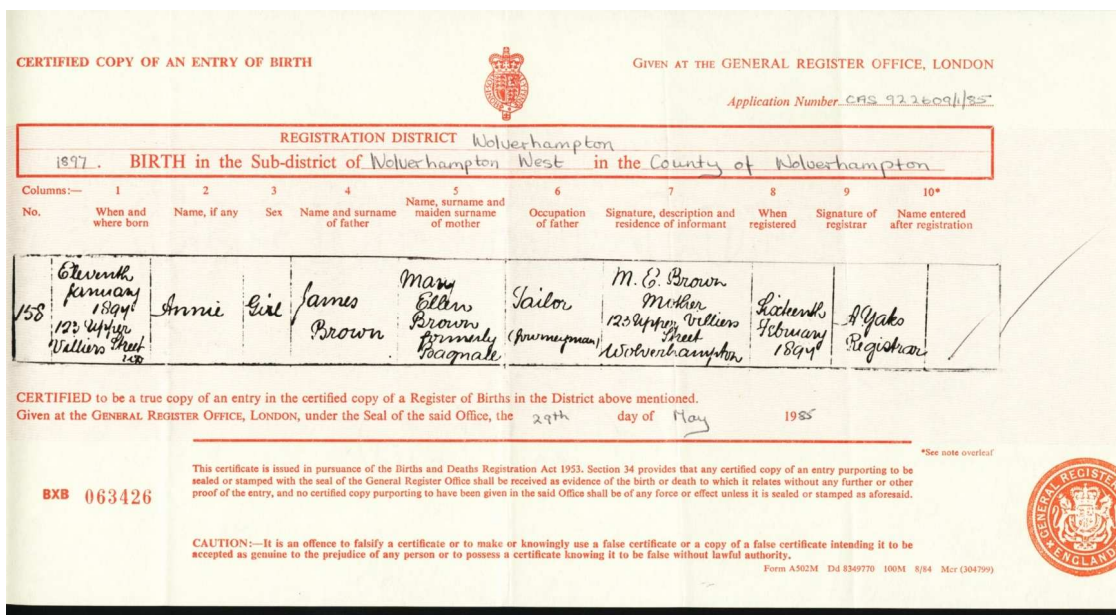 CERTIFIED COPY OF AN ENTRY OF BIRTH
GIVEN AT THE GENERAL REGISTER OFFICE, LONDON
Application Number CAS 922609/1/85
REGISTRATION DISTRICT Wolverhampton
1897. BIRTH in the Sub-district of Wolverhampton West in the County of Wolverhampton
Columns:— 1 2 3 4 5 6 7 8 9 10*
No. When and where born Name, if any Sex Name and surname of father Name, surname and maiden surname of mother Occupation of father Signature, description and residence of informant When registered Signature of registrar Name entered after registration
158
Eleventh
January
1897
123 Upper
Villiers Street
Annie
Girl
James
Brown
Mary
Ellen
Brown
formerly
Bagnale
Tailor
(Journeyman)
M. E. Brown
Mother
123 Upper Villiers
Street
Wolverhampton
Sixteenth
February
1897
Registrar
CERTIFIED to be a true copy of an entry in the certified copy of a Register of Births in the District above mentioned.
Given at the GENERAL REGISTER OFFICE, LONDON, under the Seal of the said Office, the 29th day of May 1985
*See note overleaf
This certificate is issued in pursuance of the Births and Deaths Registration Act 1953. Section 34 provides that any certified copy of an entry purporting to be
sealed or stamped with the seal of the General Register Office shall be received as evidence of the birth or death to which it relates without any further or other
proof of the entry, and no certified copy purporting to have been given in the said Office shall be of any force or effect unless it is sealed or stamped as aforesaid.
BXB 063426
CAUTION:—It is an offence to falsify a certificate or to make or knowingly use a false certificate or a copy of a false certificate intending it to be
accepted as genuine to the prejudice of any person or to possess a certificate knowing it to be false without lawful authority.
Form A502M Dd 8349770 100M 8/84 Mcr (304799)
GENERAL REGISTER
ENGLAND